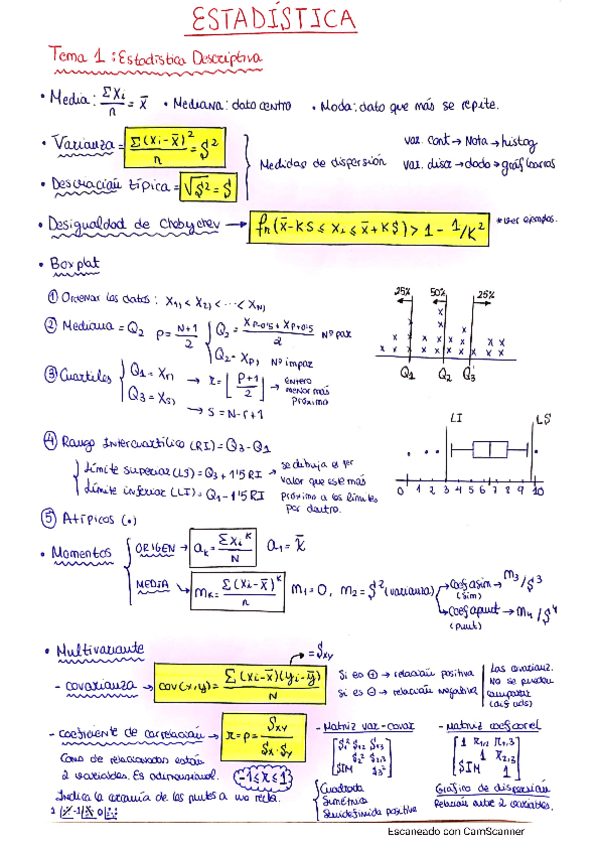 ESTADÍSTICA
Tema 1: Estadística Descriptiva
• Media: Σxi/n = x̄ • Mediana: dato centro • Moda: dato que más se repite.
• Varianza = Σ(xi-x̄)²/n = S²
• Desviación típica = √S² = S
Medidas de dispersión
var. cont → Nota → histog
var. disc → dado → gráf barras
• Desigualdad de Chebychev → fr(x̄-KS ≤ xi ≤ x̄+KS) > 1 - 1/K² *Ver ejemplos.
• Boxplot
① Ordenar los datos: x(1) < x(2) < ... < x(N)
② Mediana = Q2 P = N+1/2 { Q2 = xp-0'5 + xp+0'5/2 Nº par
Q2 = x(p) Nº impar
③ Cuartiles { Q1 = x(r) → r = ⌊p+1/2⌋ → entero menor más próximo
Q3 = x(s) → s = N-r+1
25% 50% 25%
Q1 Q2 Q3
④ Rango Intercuartílico (RI) = Q3 - Q1
Límite superior (LS) = Q3 + 1'5 RI
Límite inferior (LI) = Q1 - 1'5 RI
→ se dibuja el 1er
valor que esté más
próximo a los límites
por dentro.
LI LS
0 1 2 3 4 5 6 7 8 9 10
⑤ Atípicos (•)
• Momentos { ORIGEN → ak = Σxi^K/N a1 = x̄
MEDIA → mk = Σ(xi-x̄)^K/n m1 = 0, m2 = S² (varianza) → Coef asim → m3/S³
(sim)
→ Coef apunt → m4/S⁴
(punt)
• Multivariante
- covarianza → cov(x,y) = Σ(xi-x̄)(yi-ȳ)/N → = Sxy
Si es ⊕ → relación positiva
Si es ⊖ → relación negativa
Las covarianz.
No se pueden
comparar
(di≠ uds)
- Coeficiente de correlación → r = ρ = Sxy/Sx·Sy
Como de relacionadas están
2 variables. Es adimensional. -1 ≤ r ≤ 1
Indica la cercanía de los puntos a una recta.
- Matriz var-covar
[S1² S12 S13
S2² S23
SIM S3²]
Cuadrada
Simétrica
Semidefinida positiva
- Matriz coef corel
[1 r1,2 r1,3
1 r2,3
SIM 1]
Gráfico de dispersión
Relación entre 2 variables.
Escaneado con CamScanner